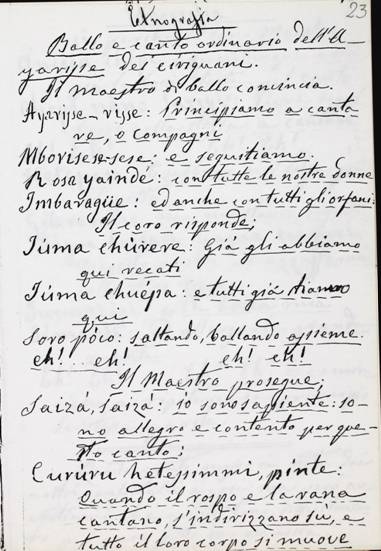 Etnografia
23
Ballo e canto ordinario dell'A-
yarisse dei ciriguani.
Il maestro di ballo comincia.
Ayarisse-risse: Principiamo a canta-
re, o compagni
Mborisese-sese: e seguitiamo.
Rosa yaindé: con tutte le nostre donne
Imbaragüe: ed anche con tutti gli orfani:
Il coro risponde;
Iúma chùrere: Già gli abbiamo
qui recati
Iúma chuépa: e tutti già
qui
Soro póco: saltando, ballando assieme.
eh!... eh! eh! eh!
Il Maestro prosegue;
Saizá, saizá: io sono sapiente: so-
no allegro e contento per que-
sto canto;
Curúru hetesimmi, pinte:
Quando il rospo e la rana
cantano, s'indirizzano sù, e
tutto il loro corpo si muove